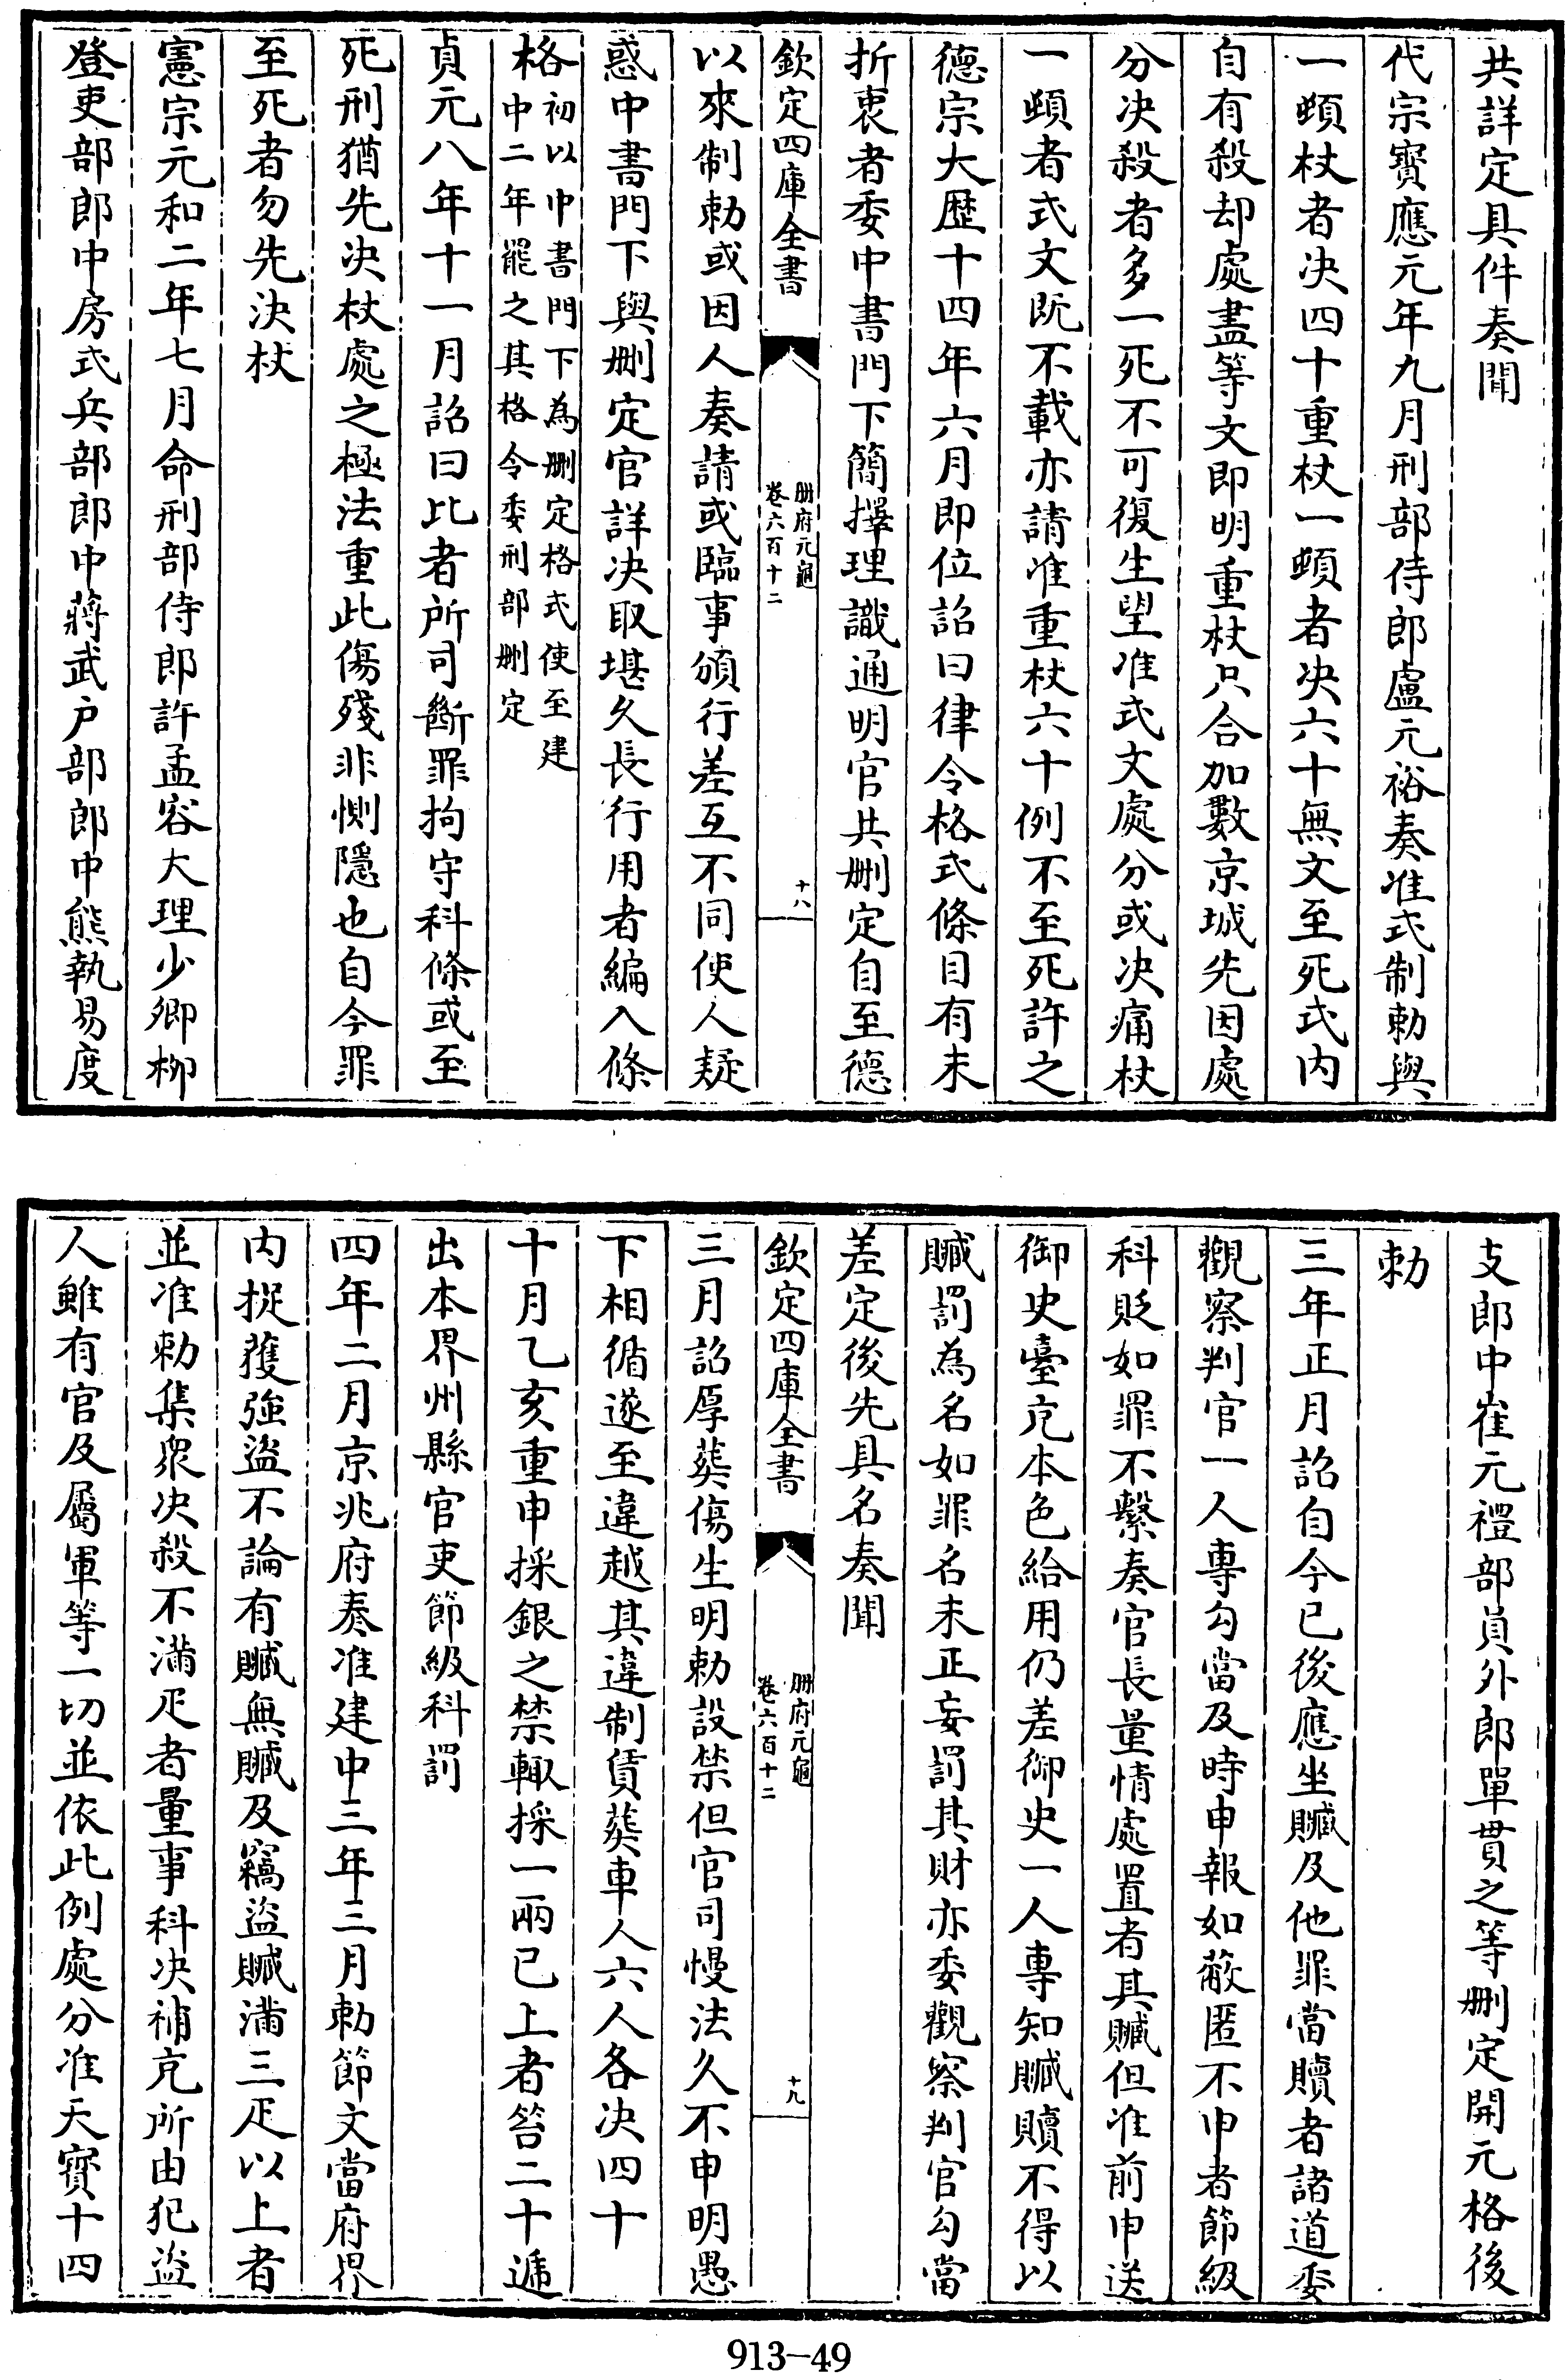 共詳定具件奏聞
代宗寳應元年九月刑部侍郎盧元裕奏准式制勅與
一頓杖者決四十重杖一頓者决六十無文至死式内
自有殺却處盡等文即明重杖只合加數京城先因處
分决殺者多一死不可復生望准式文處分或决痛杖
一頓者式文既不載亦請准重杖六十例不至死許之
德宗大歴十四年六月即位詔曰律令格式條目有未
折衷者委中書門下簡擇理識通明官共刪定自至德
欽定四庫全書
冊府元龜
卷六百十二
十八
以來制勅或因人奏請或臨事頒行差互不同使人疑
惑中書門下與刪定官詳决取堪久長行用者編入條
格初以中書門下為刪定格式使至建
中二年罷之其格令委刑部刪定
貞元八年十一月詔曰比者所司斷罪拘守科條或至
死刑猶先决杖處之極法重此傷殘非惻隱也自今罪
至死者勿先決杖
憲宗元和二年七月命刑部侍郎許孟容大理少卿柳
登吏部郎中房式兵部郎中蔣武户部郎中熊執易度
支郎中崔元禮部員外郎單貫之等刪定開元格後
勅
三年正月詔自今已後應坐贓及他罪當贖者諸道委
觀察判官一人專勾當及時申報如蔽匿不申者節級
科貶如罪不繫奏官長量情處置者其贓但准前申送
御史臺充本色給用仍差御史一人專知贓贖不得以
贓罰為名如罪名未正妄罰其財亦委觀察判官勾當
差定後先具名奏聞
欽定四庫全書
冊府元龜
卷六百十二
十九
三月詔厚葬傷生明勅設禁但官司慢法久不申明愚
下相循遂至違越其違制賃葬車人六人各决四十
十月乙亥重申採銀之禁輙採一兩已上者笞二十遞
出本界州縣官吏節級科罰
四年二月京兆府奏准建中三年三月勅節文當府界
内捉獲強盜不論有贓無贓及竊盜贓滿三疋以上者
並准勅集衆决殺不滿疋者量事科决補充所由犯盜
人雖有官及屬軍等一切並依此例處分准天寳十四
913-49